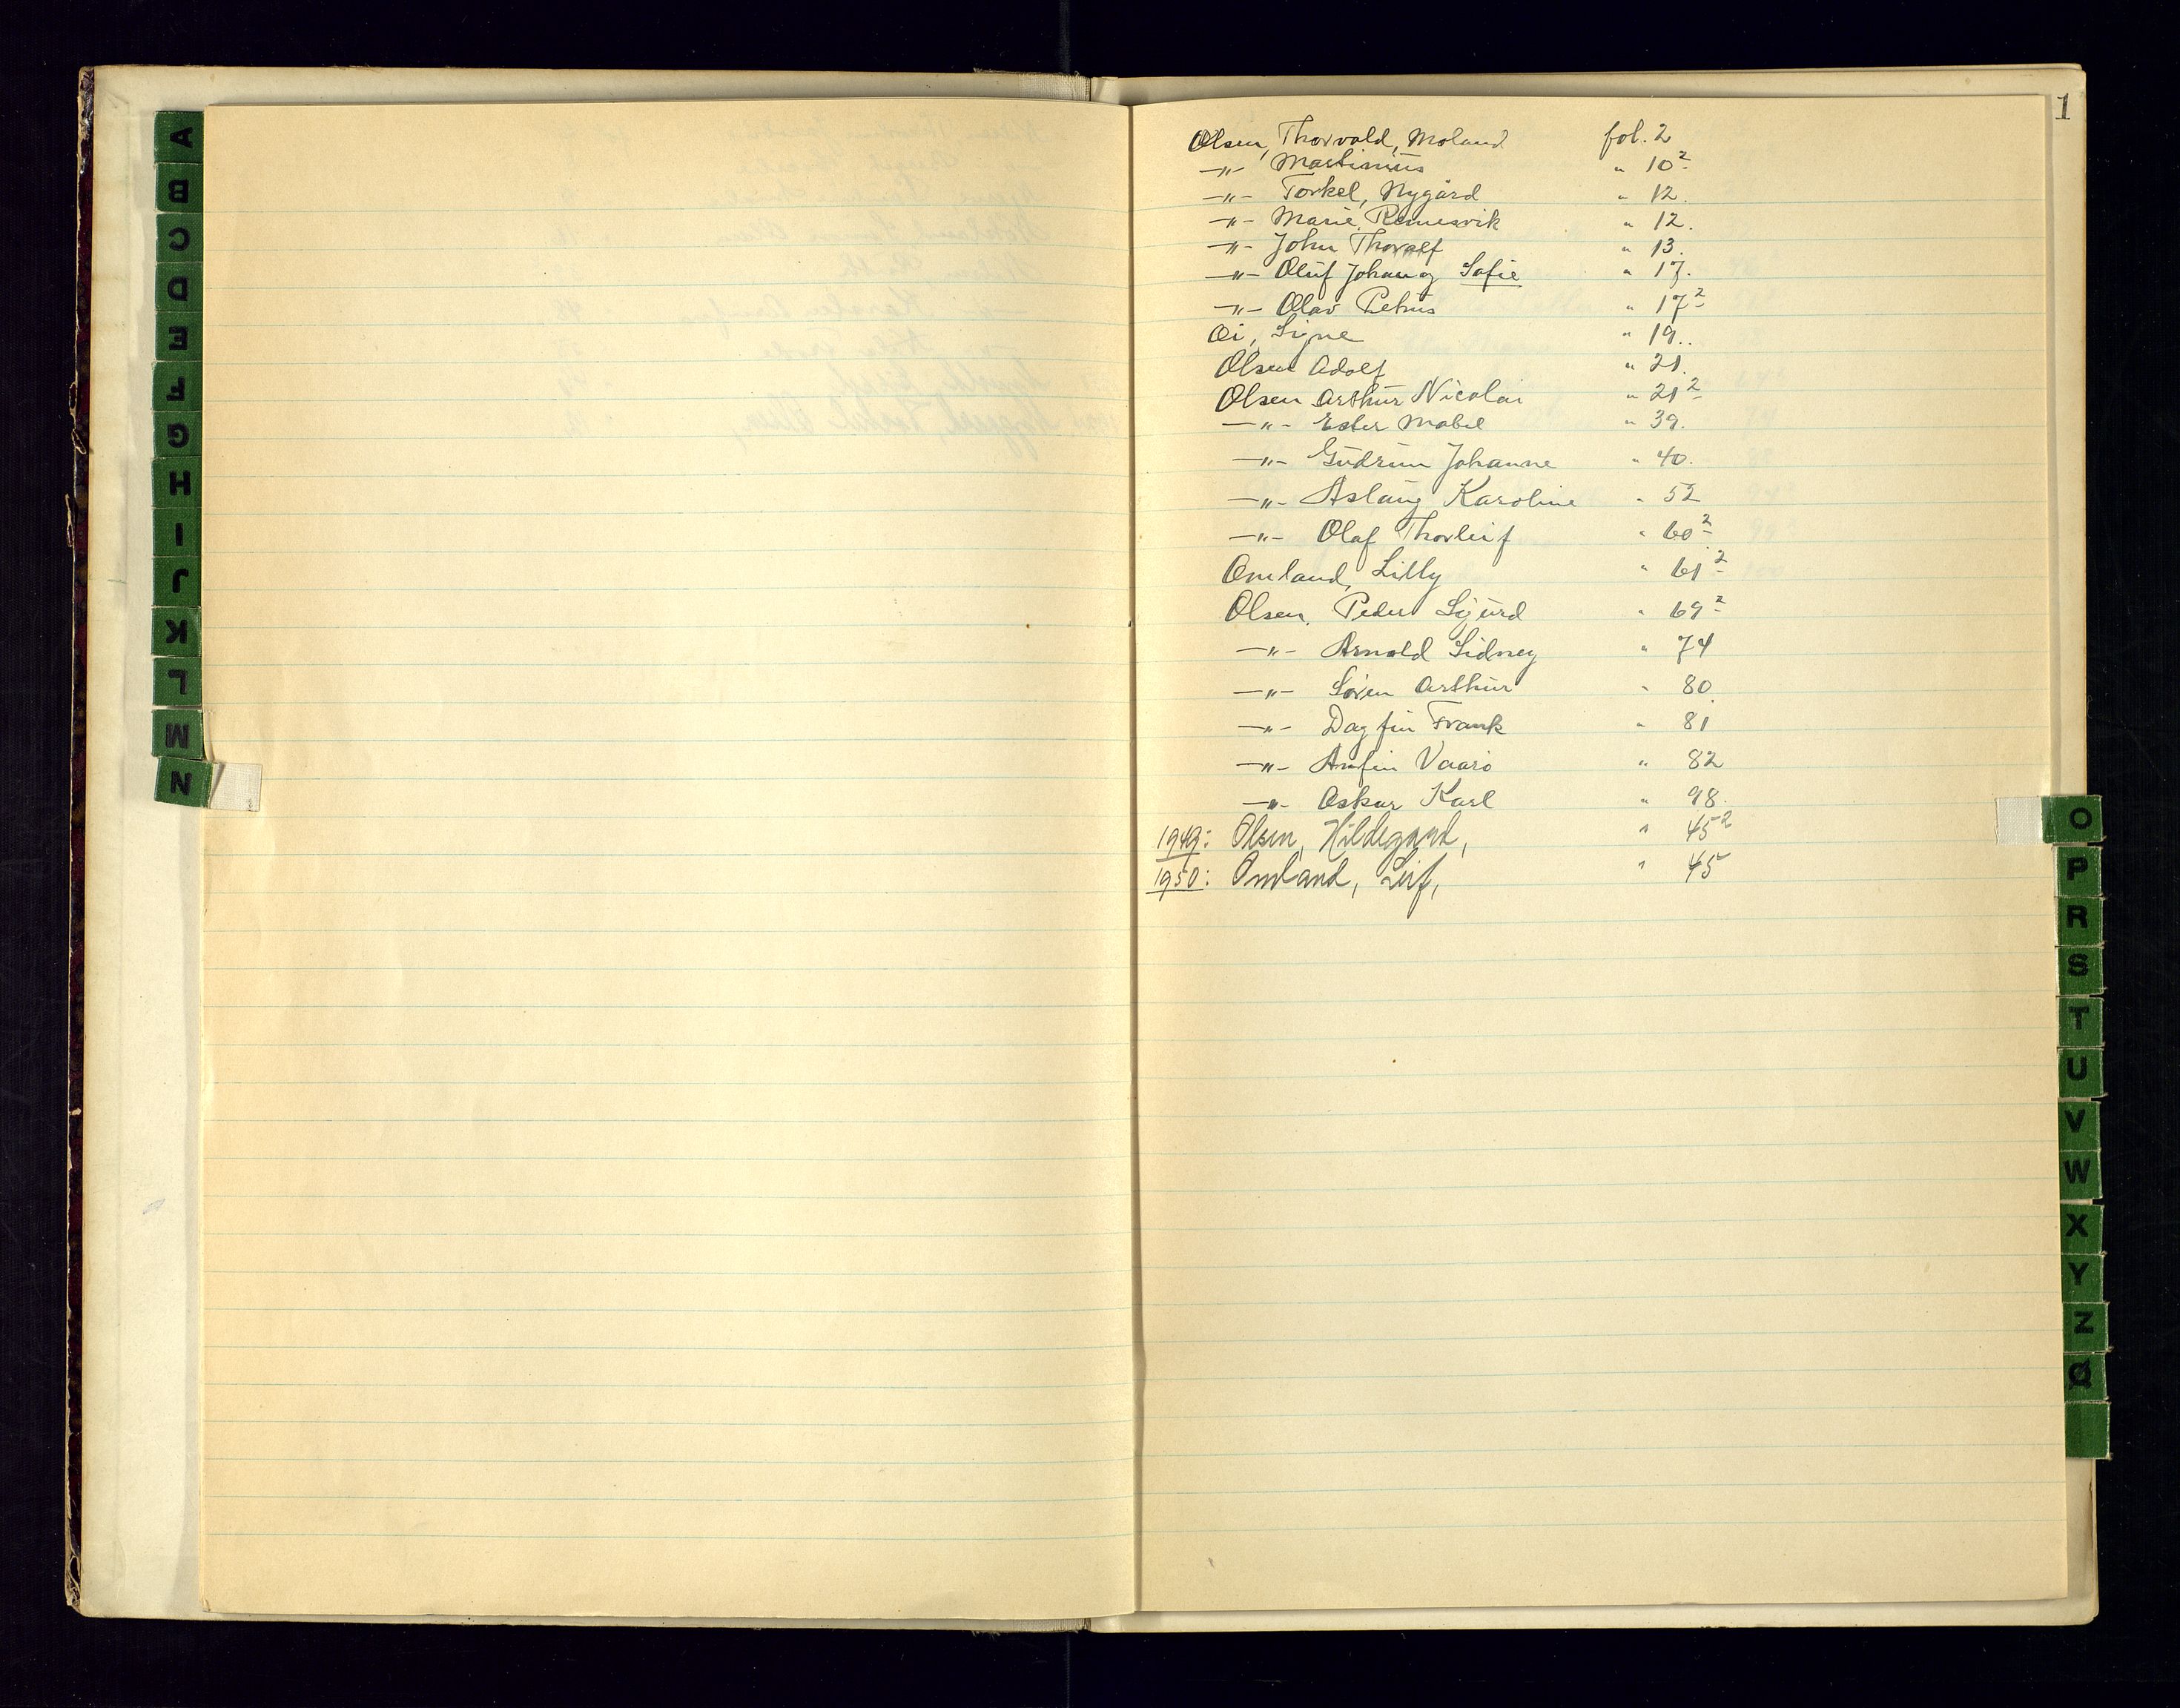 A
B
C
D
E
F
G
H
I
J
K
L
M
N
1
Olsen, Thorvald, Moland fol. 2
—"— Martinius " 10²
—"— Torkel, Nygård " 12.
—"— Marie, " 12.
—"— John Thoralf " 13.
—"— Oluf Johan og Sofie " 17.
—"— Olav Petrus " 17²
Oi, Signe " 19..
Olsen Adolf " 21.
Olsen Arthur Nicolai " 21²
—"— Ester Mabel " 39.
—"— Gudrun Johanne " 40.
—"— Aslaug Karoline " 52
—"— Olaf Thorleif " 60²
Omland, Lilly " 61²
Olsen, Peder Sigurd " 69²
—"— Arnold Sidney " 74
—"— Søren Arthur " 80
—"— Dagfin Frank " 81
—"— Arnfin " 82
—"— Oskar Karl " 98.
1949: Olsen, Hildegard, " 45²
1950: Omland, Leif, " 45
O
P
R
S
T
U
V
W
X
Y
Z
Ø